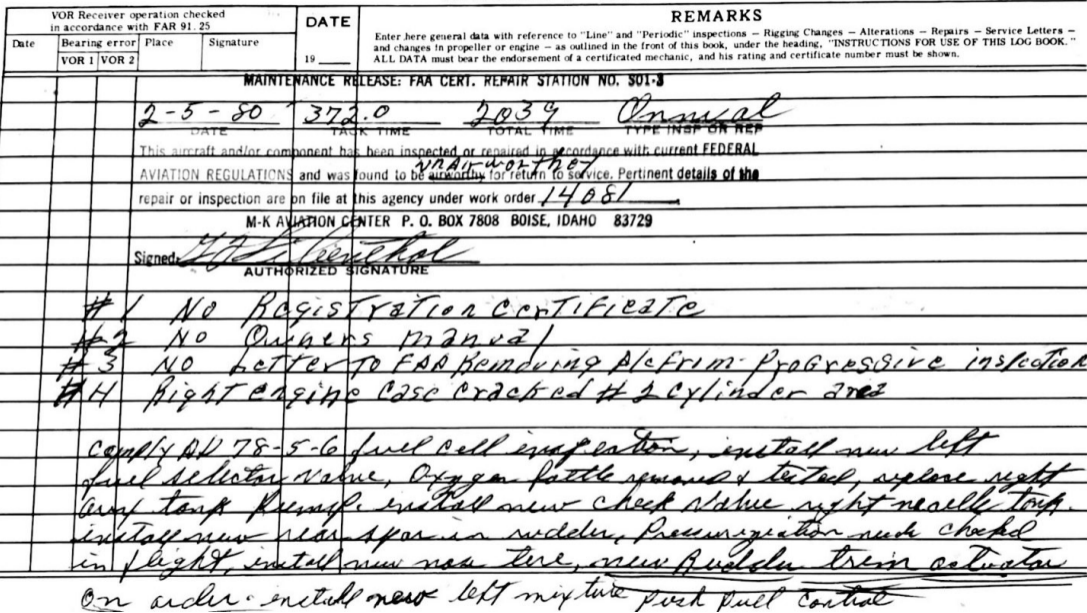 VOR Receiver operation checked
in accordance with FAR 91.25
Date
Bearing error
VOR 1 VOR 2
Place
Signature
DATE
19
REMARKS
Enter here general data with reference to "Line" and "Periodic" inspections – Rigging Changes – Alterations – Repairs – Service Letters –
and changes in propeller or engine – as outlined in the front of this book, under the heading, "INSTRUCTIONS FOR USE OF THIS LOG BOOK."
ALL DATA must bear the endorsement of a certificated mechanic, and his rating and certificate number must be shown.
MAINTENANCE RELEASE: FAA CERT. REPAIR STATION NO. S01-3
2-5-80 372.0 2039 Annual
DATE TACK TIME TOTAL TIME TYPE INSP OR REP
This aircraft and/or component has been inspected or repaired in accordance with current FEDERAL
unairworthey
AVIATION REGULATIONS and was found to be airworthy for return to service. Pertinent details of the
repair or inspection are on file at this agency under work order 14081
M-K AVIATION CENTER P. O. BOX 7808 BOISE, IDAHO 83729
Signed:
AUTHORIZED SIGNATURE
#1 No Registration Certificate
#2 No Owners manual
#3 No Letter To FAA Removing A/c From Progressive inspection
#4 Right engine case cracked #2 cylinder area
comply AD 78-5-6 fuel cell inspection, install new left
fuel selector valve, Oxygen bottle removed & tested, replace right
aux tank pump. install new check valve right nacelle tank.
install new rear spar in rudder, Pressurization needs checked
in flight, install new nose tire, new Rudder trim actuator
on order. install new left mixture push pull control